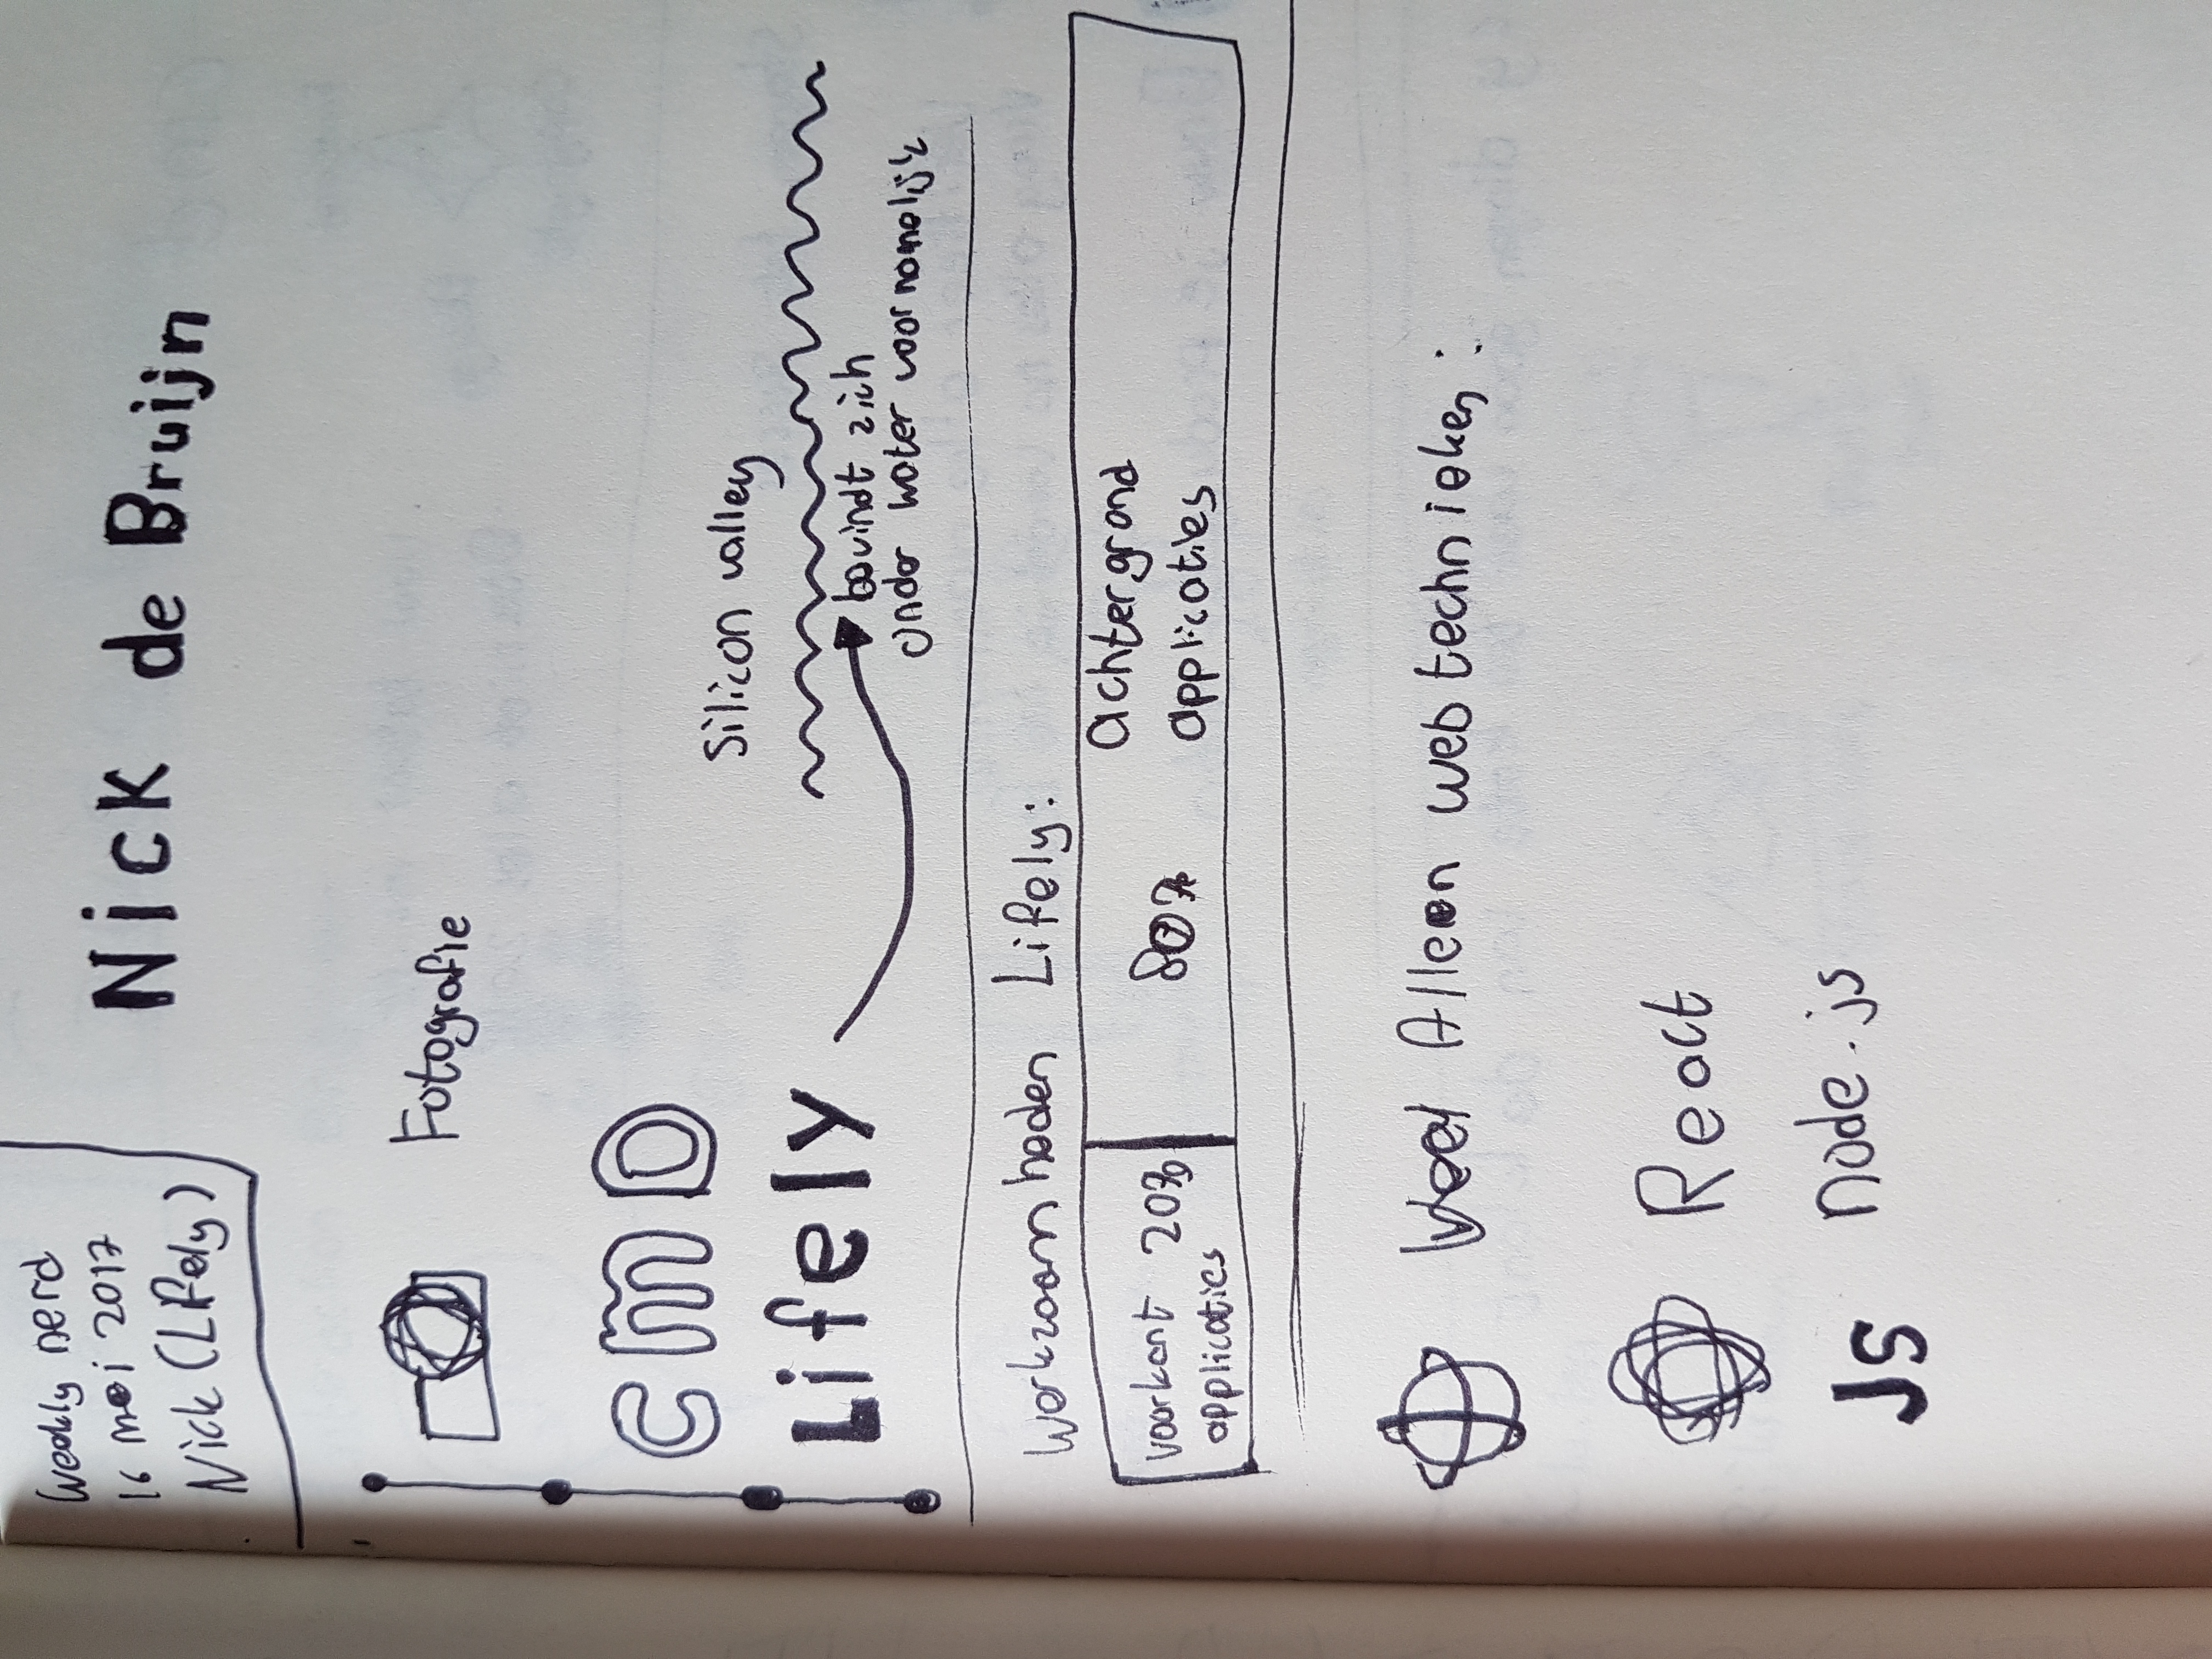 Weekly nerd
16 mei 2017
Nick (Lifely)
Nick de Bruijn
Fotografie
CMD
Silicon valley
Lifely
bevindt zich
onder water voornamelijk
Werkzaamheden Lifely:
voorkant 20%
applicaties
80%
achtergrond
applicaties
Veel Alleen web technieken:
React
JS node.js